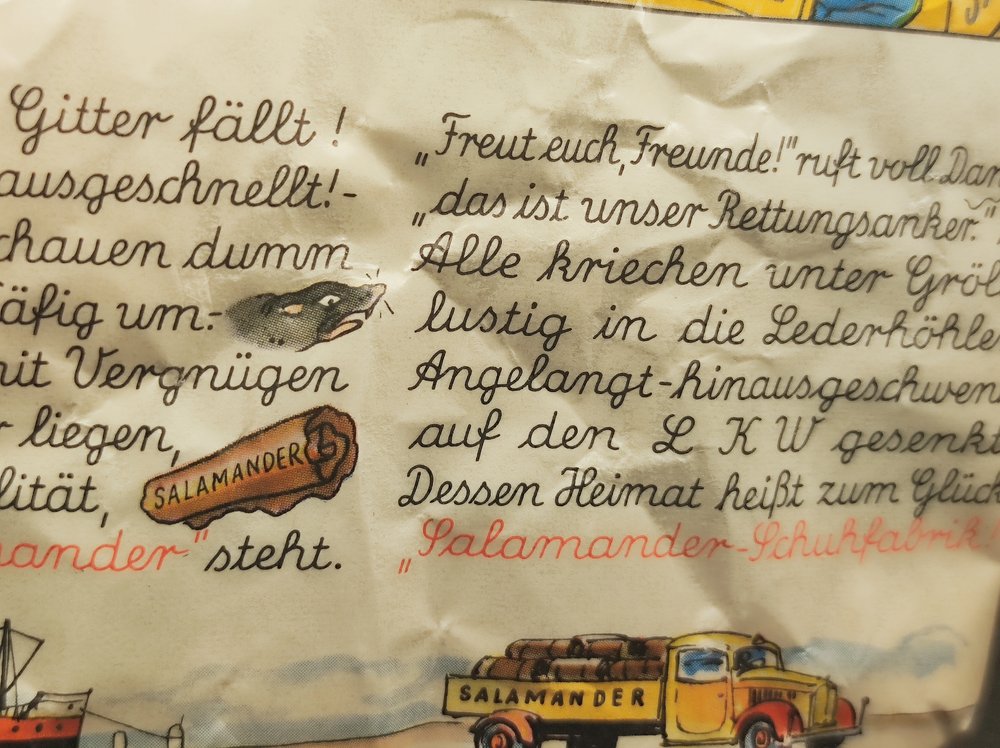 Gitter fällt !
ausgeschnellt!-
chauen dumm
äfig um:-
it Vergnügen
liegen,
SALAMANDER
lität,
ander" steht.
„Freut euch, Freunde!" ruft voll Dan
„das ist unser Rettungsanker."
Alle kriechen unter Gröl
lustig in die Lederhöhle
Angelangt-hinausgeschwen
auf den L K W gesenkt
Dessen Heimat heißt zum Glück
„Salamander-Schuhfabrik!
SALAMANDER